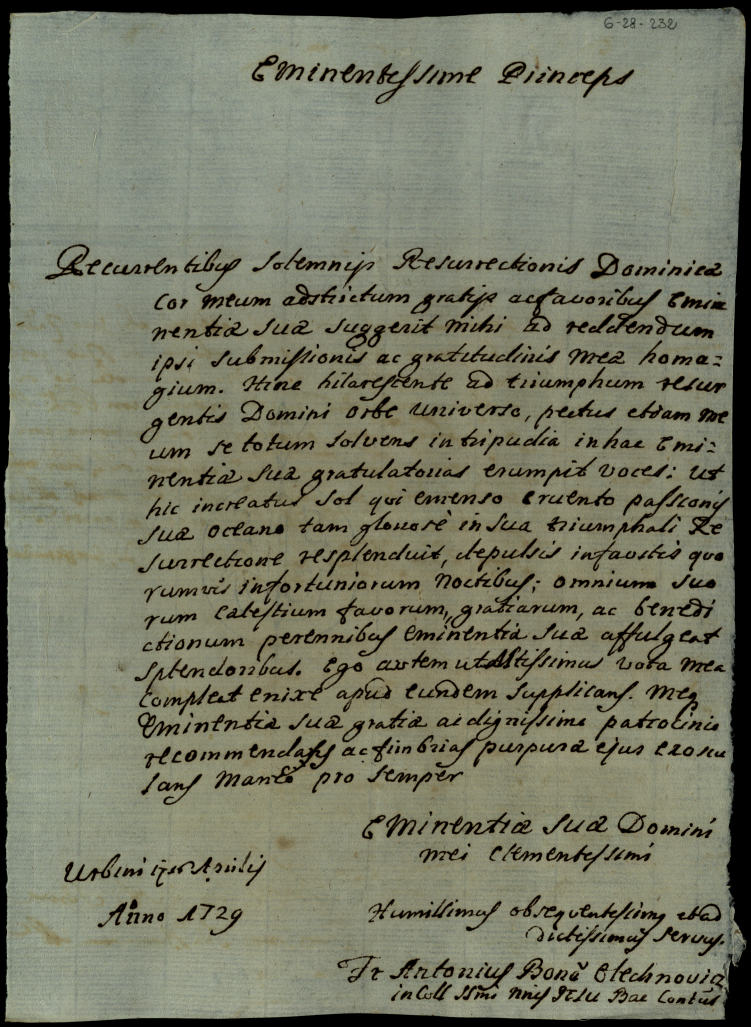 6-28-232
Eminentissime Princeps
Recurrentibus solemnijs Resurrectionis Dominicæ
cor meum adstrictum gratijs ac favoribus Emi=
nentiæ suæ suggerit mihi ad reddendum
ipsi submissionis ac gratitudinis meæ homa=
gium. Hinc hilarescente ad triumphum resur
gentis Domini orbe universo, pectus etiam me
um se totum solvens in tripudia in hac Emi=
nentiæ suæ gratulatorias erumpit voces: Ut
hic increatus sol qui emenso cruento passionis
suæ oceano tam gloriosè in sua triumphali Re
surrectione resplenduit, depulsis infaustis quo
rumvis infortuniorum noctibus; omnium suo
rum cælestium favorum, gratiarum, ac benedi
ctionum perennibus eminentiæ suæ affulgeat
splendoribus. Ego autem ut Altissimus vota mea
compleat enixe apud eundem supplicans. Meq
Eminentiæ suæ gratiæ ac dignissimo patrocinio
recommendans ac fimbrias purpuræ ejus exoscu
lans Maneo pro semper
Eminentiæ suæ Domini
mei clementissimi
Urbini Aprilis
Anno 1729
Humillimus obsequentissimq et ad
dictissimus servus.
Fr Antonius Bonã Olechnovicz
in Coll